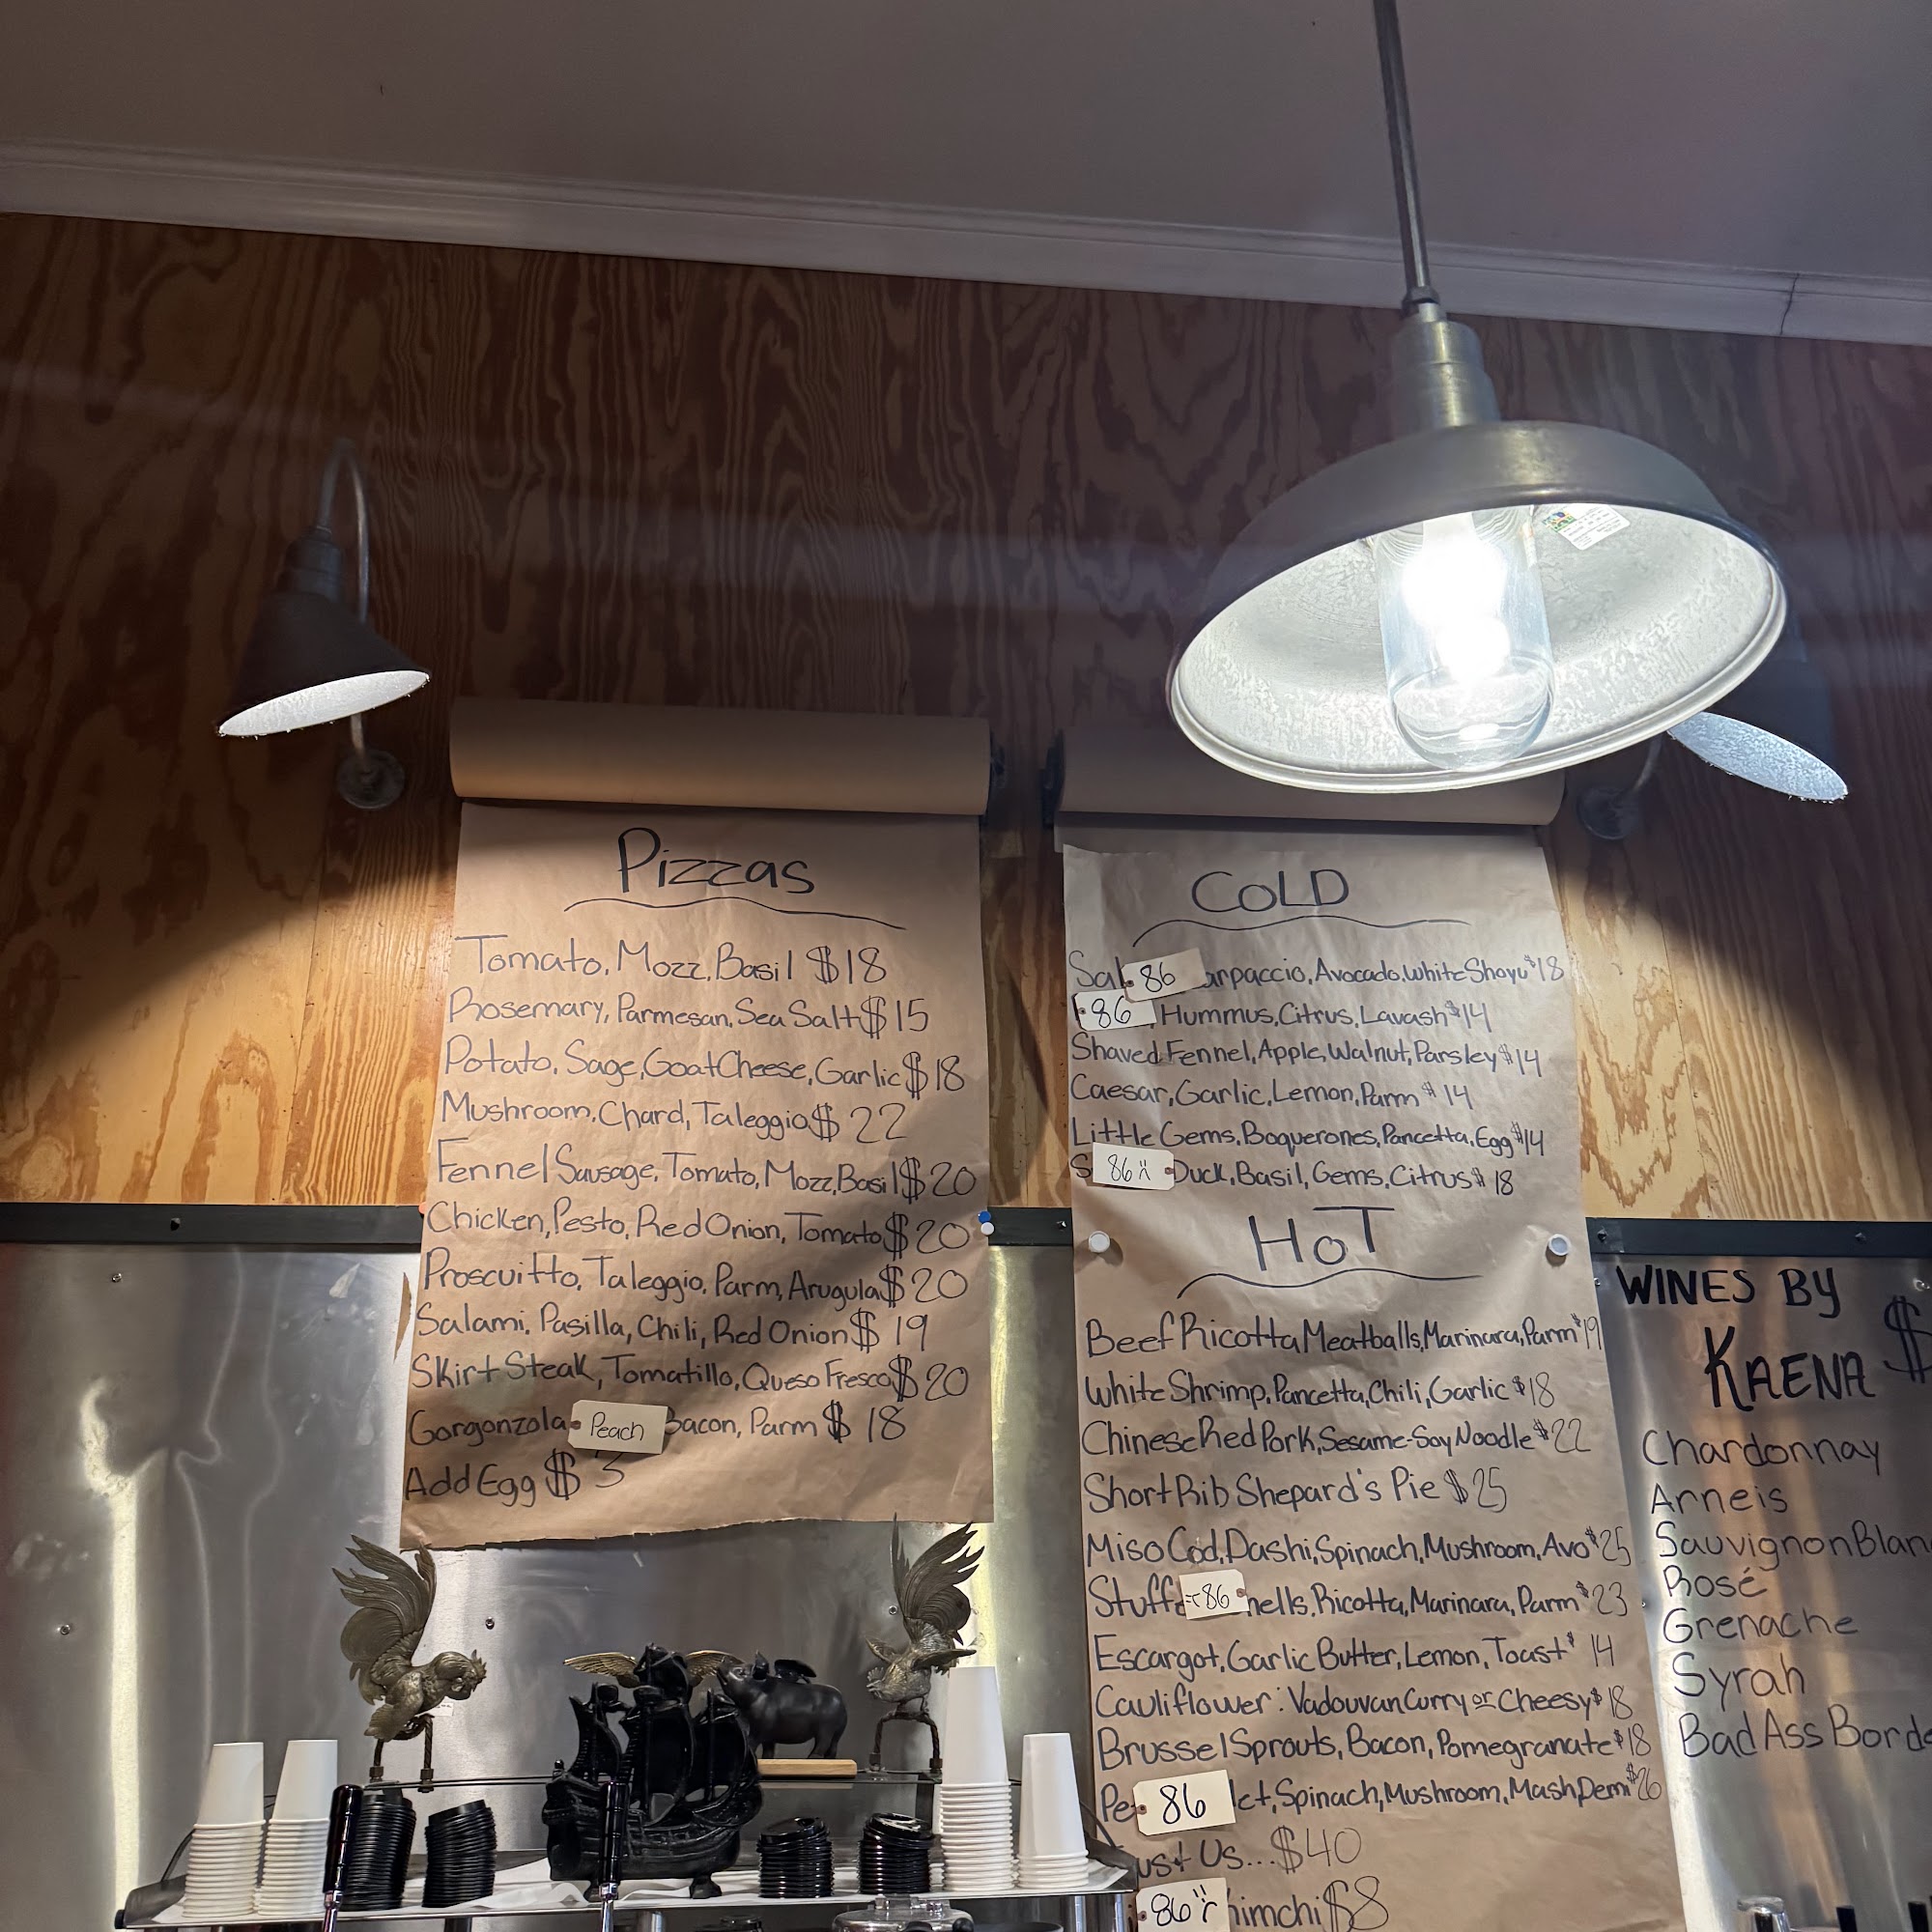 Pizzas
Tomato, Mozz, Basil $18
Rosemary, Parmesan, Sea Salt $15
Potato, Sage, Goat Cheese, Garlic $18
Mushroom, Chard, Taleggio $22
Fennel Sausage, Tomato, Mozz, Basil $20
Chicken, Pesto, Red Onion, Tomato $20
Proscuitto, Taleggio, Parm, Arugula $20
Salami, Pasilla, Chili, Red Onion $19
Skirt Steak, Tomatillo, Queso Fresco $20
Gorgonzola Peach Bacon, Parm $18
Add Egg $3
COLD
Sal 86 arpaccio, Avocado, White Shoyu $18
86, Hummus, Citrus, Lavash $14
Shaved Fennel, Apple, Walnut, Parsley $14
Caesar, Garlic, Lemon, Parm $14
Little Gems, Boquerones, Pancetta, Egg $14
S 86 Duck, Basil, Gems, Citrus $18
HOT
Beef Ricotta Meatballs, Marinara, Parm $19
White Shrimp, Pancetta, Chili, Garlic $18
Chinese Red Pork, Sesame-Soy Noodle $22
Short Rib Shepard's Pie $25
Miso Cod, Dashi, Spinach, Mushroom, Avo $25
Stuff 86 hells, Ricotta, Marinara, Parm $23
Escargot, Garlic Butter, Lemon, Toast $14
Cauliflower: Vadouvan Curry or Cheesy $18
Brussel Sprouts, Bacon, Pomegranate $18
Pe 86 let, Spinach, Mushroom, Mash, Demi $26
ust Us... $40
86 imchi $8
WINES BY
KAENA $
Chardonnay
Arneis
Sauvignon Blan
Rosé
Grenache
Syrah
Bad Ass Borde